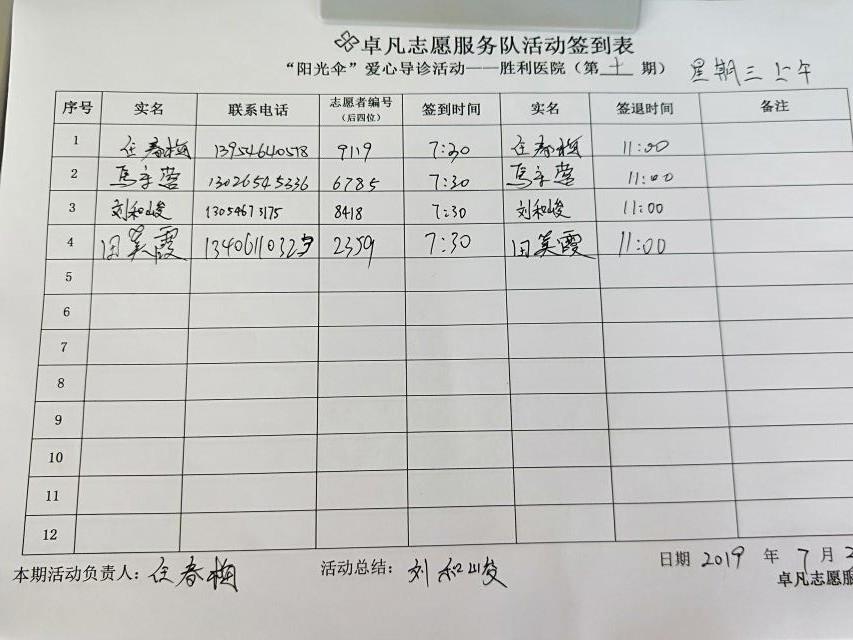 卓凡志愿服务队活动签到表
“阳光伞”爱心导诊活动——胜利医院（第 十 期） 星期三 上午
序号 实名 联系电话 志愿者编号（后四位） 签到时间 实名 签退时间 备注
1 任春梅 13954640578 9119 7:30 任春梅 11:00
2 13026545336 6785 7:30 11:00
3 刘和峻 13054673175 8418 7:30 刘和峻 11:00
4 田英霞 2359 7:30 田英霞 11:00
5
6
7
8
9
10
11
12
本期活动负责人：任春梅 活动总结：刘和峻 日期 2019 年 7 月
卓凡志愿服